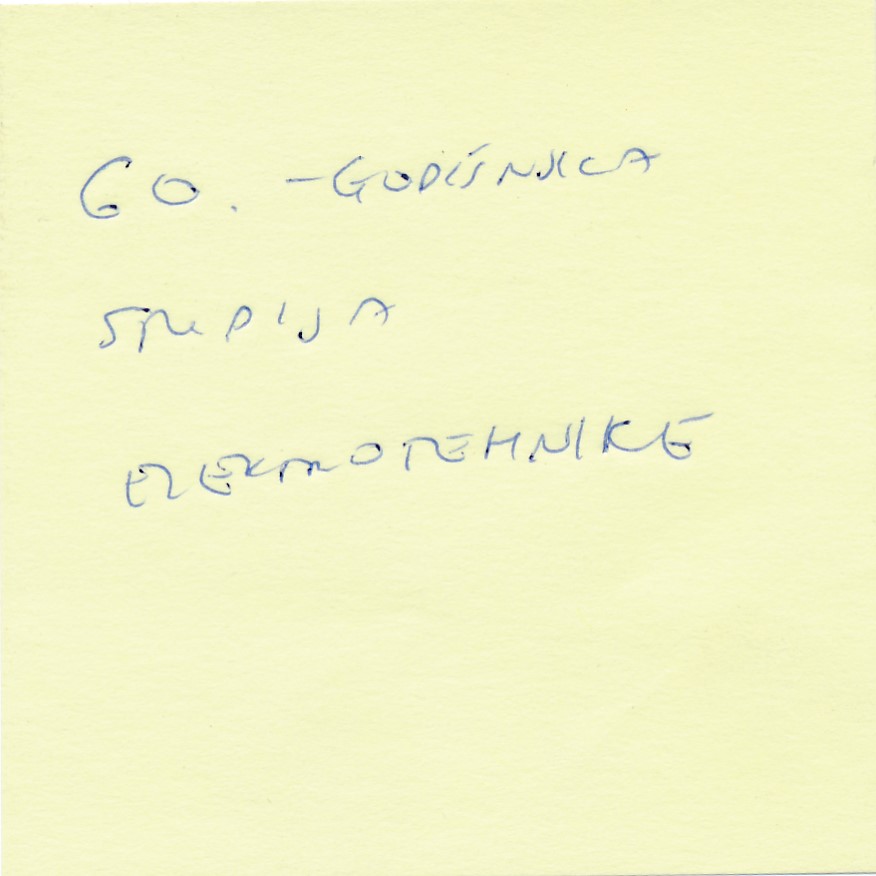 60. -GODIŠNJICA
STUDIJA
ELEKTROTEHNIKE